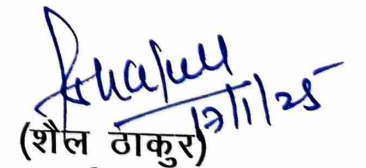 17/1/25
(शैल ठाकुर)